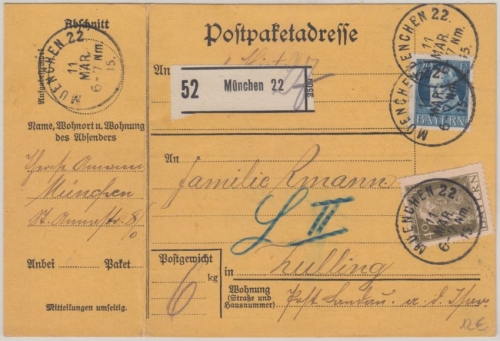 Abschnitt
MUENCHEN 22.
11
MAR.
6-7 Nm.
15.
Aufgabestempel
Name, Wohnort u. Wohnung
des Absenders
München
Anbei Paket
Mitteilungen umseitig.
Postpaketadresse
An
52 München 22
BAYERN
MUENCHEN 22.
11
MAR.
6-7 Nm.
15.
An
Familie
L II
Postgewicht
6 kg
in
Wohnung
(Straße und
Hausnummer)
Post Landau a. d. Isar
MUENCHEN 22.
11
MAR.
6-7 Nm.
15.
BAYERN
12€